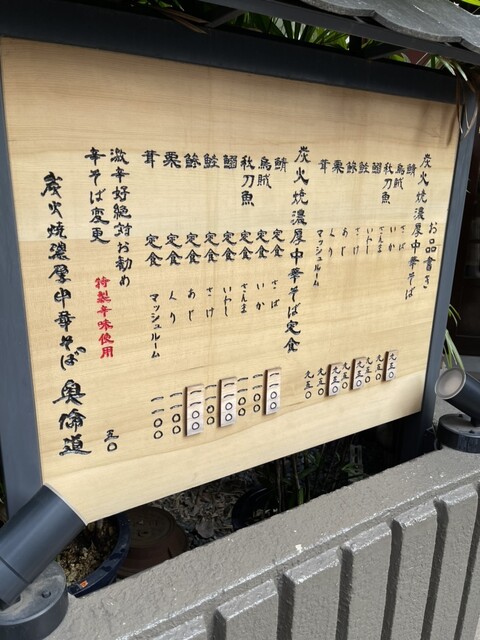 お品書き
炭火焼濃厚中華そば
鯖 さば 九五〇
烏賊 いか 九五〇
秋刀魚 さんま 九五〇
鰯 いわし 九五〇
鮭 さけ 九五〇
鯵 あじ 九五〇
栗 くり 九五〇
茸 マッシュルーム 九五〇
炭火焼濃厚中華そば定食
鯖 定食 さば 一一〇〇
烏賊 定食 いか 一一〇〇
秋刀魚 定食 さんま 一一〇〇
鰯 定食 いわし 一一〇〇
鮭 定食 さけ 一一〇〇
鯵 定食 あじ 一一〇〇
栗 定食 くり 一一〇〇
茸 定食 マッシュルーム 一一〇〇
激辛好絶対お勧め
辛そば変更 特製辛味使用 五〇
炭火焼濃厚中華そば 奥倫道